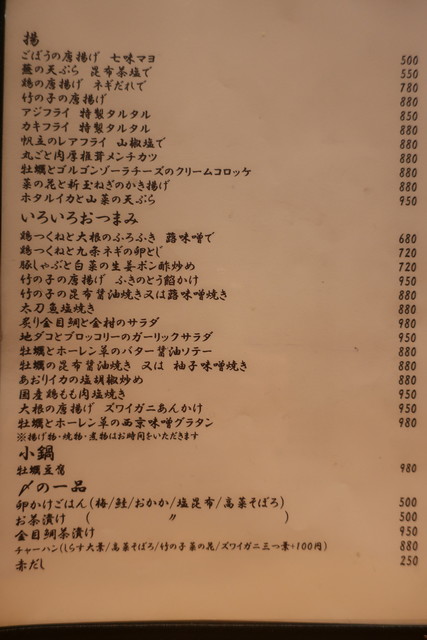 揚
ごぼうの唐揚げ 七味マヨ 500
蕪の天ぷら 昆布茶塩で 550
鶏の唐揚げ ネギだれで 780
竹の子の唐揚げ 880
アジフライ 特製タルタル 850
カキフライ 特製タルタル 880
帆立のレアフライ 山椒塩で 880
丸ごと肉厚椎茸メンチカツ 880
牡蠣とゴルゴンゾーラチーズのクリームコロッケ 880
菜の花と新玉ねぎのかき揚げ 880
ホタルイカと山菜の天ぷら 950
いろいろおつまみ
鶏つくねと大根のふろふき 蕗味噌で 680
鶏つくねと九条ネギの卵とじ 720
豚しゃぶと白菜の生姜ポン酢炒め 720
竹の子の唐揚げ ふきのとう餡かけ 950
竹の子の昆布醤油焼き又は蕗味噌焼き 880
太刀魚塩焼き 880
炙り金目鯛と金柑のサラダ 980
地ダコとブロッコリーのガーリックサラダ 950
牡蠣とホーレン草のバター醤油ソテー 880
牡蠣の昆布醤油焼き 又は 柚子味噌焼き 880
あおりイカの塩胡椒炒め 880
国産鶏もも肉塩焼き 950
大根の唐揚げ ズワイガニあんかけ 950
牡蠣とホーレン草の西京味噌グラタン 980
※揚げ物・焼物・煮物はお時間をいただきます
小鍋
牡蠣豆腐 980
〆の一品
卵かけごはん(梅/鮭/おかか/塩昆布/高菜そぼろ) 500
お茶漬け ( 〃 ) 500
金目鯛茶漬け 950
チャーハン(しらす大葉/高菜そぼろ/竹の子菜の花/ズワイガニ三つ葉+100円) 880
赤だし 250